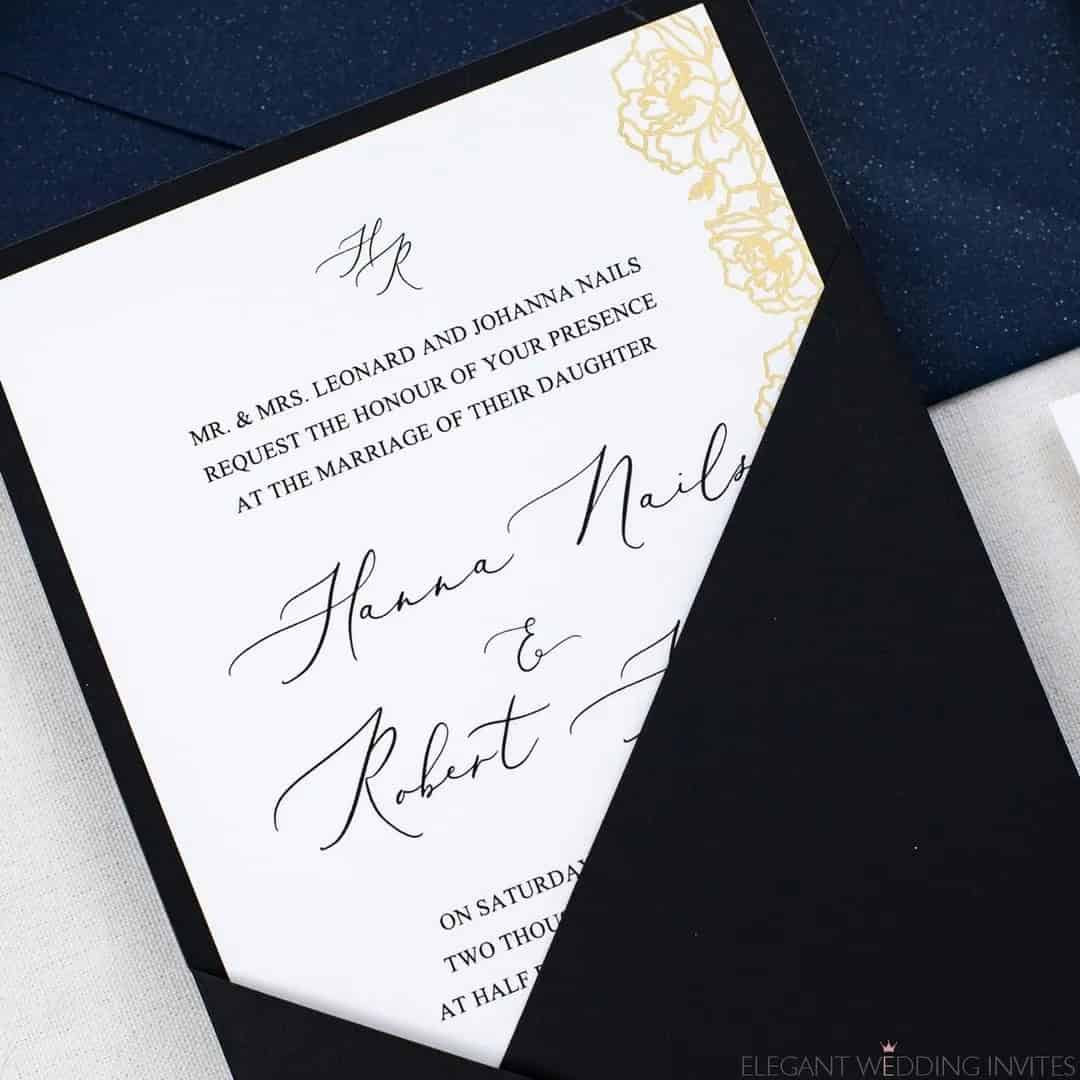 HR
MR. & MRS. LEONARD AND JOHANNA NAILS
REQUEST THE HONOUR OF YOUR PRESENCE
AT THE MARRIAGE OF THEIR DAUGHTER
Hanna Nails
&
Robert
ON SATURDAY
TWO
AT HALF
ELEGANT WEDDING INVITES